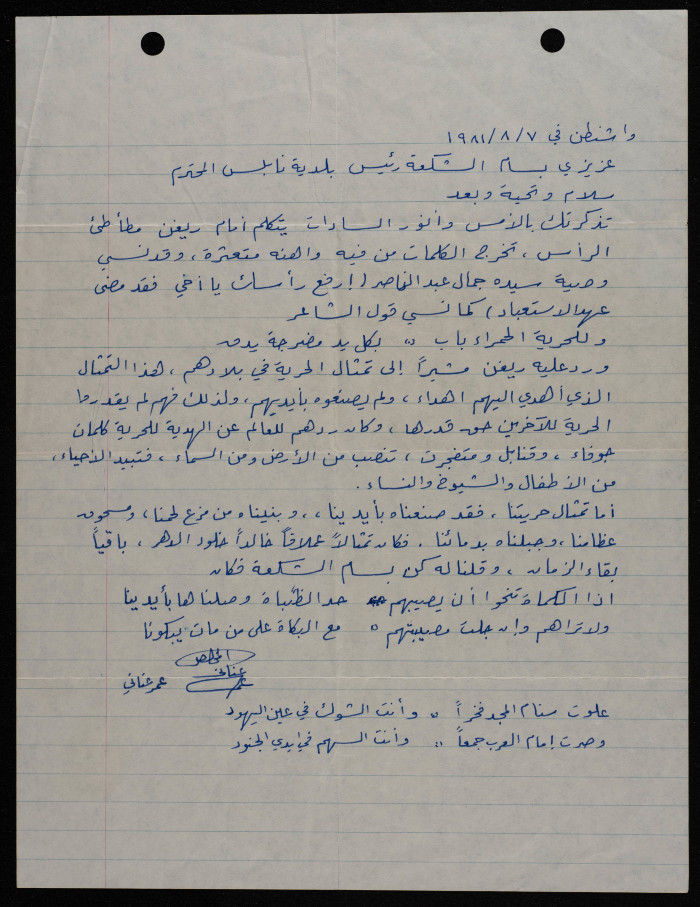 واشنطن في ٧/٨/١٩٨١
عزيزي بسام الشكعة رئيس بلدية نابلس المحترم
سلام وتحية وبعد
تذكرتك بالأمس وأنور السادات يتكلم أمام ريغن مطأطئ
الرأس ، تخرج الكلمات من فيه واهنه متعثرة ، وقد نسي
وصية سيده جمال عبد الناصر (ارفع رأسك يا أخي فقد مضى
عهد الاستعباد) كما نسي قول الشاعر
وللحرية الحمراء باب ،، بكل يد مضرجة يدق
ورد عليه ريغن مشيراً إلى تمثال الحرية في بلادهم ، هذا التمثال
الذي أهدي اليهم اهداء ، ولم يصنعوه بأيديهم ، ولذلك فهم لم يقدروا
الحرية للآخرين حق قدرها ، وكان ردهم للعالم عن الهدية للحرية كلمات
جوفاء ، وقنابل ومتفجرت ، تنصب من الأرض ومن السماء ، فتبيد الأحياء ،
من الأطفال والشيوخ والنساء .
أما تمثال حريتنا ، فقد صنعناه بأيدينا ، ، وبنيناه من مزع لحمنا ، ومسحوق
عظامنا ، وجبلناه بدمائنا . فكان تمثالاً عملاقاً خالداً خلود الدهر ، باقياً
بقاء الزمان ، وقلنا له كن بسام الشكعة فكان
اذا الكماة تنحوا أن يصيبهم حد الظباة وصلناها بأيدينا
ولا تراهم وان جلت مصيبتهم ،، مع البكاة على من مات يبكونا
المخلص
عمر عناني
علوت سنام المجد فخراً ،، وأنت الشوك في عين اليهود
وصرت إمام العرب جمعاً ،، وأنت السهم في ايدي الجنود